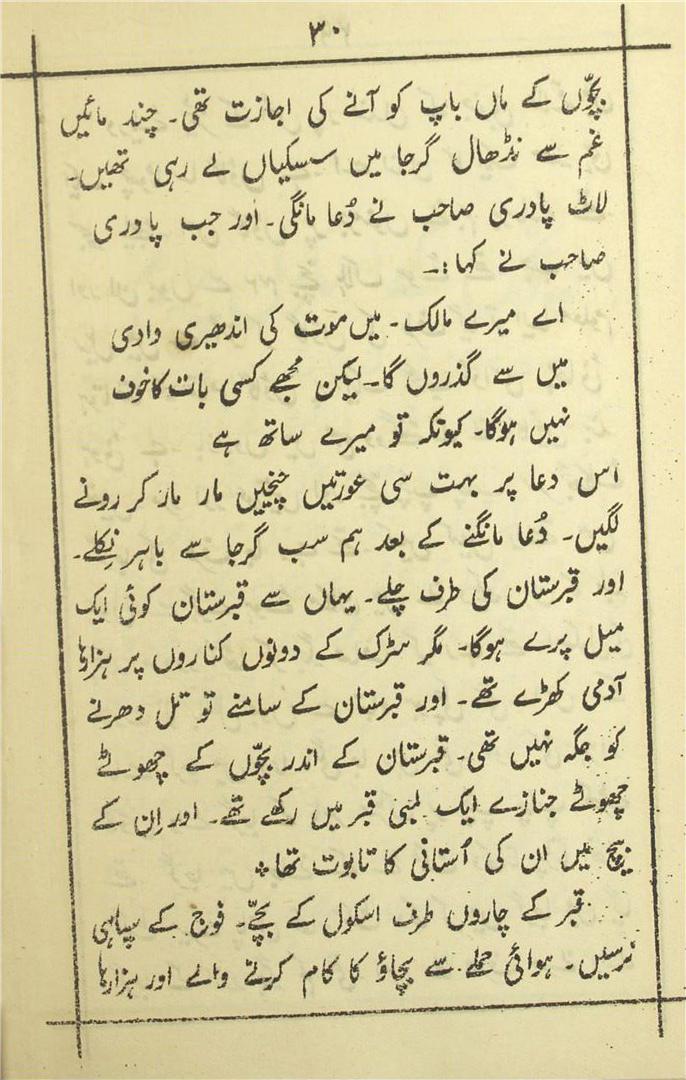 ۳۰
بچّوں کے ماں باپ کو آنے کی اجازت تھی۔ چند مائیں
غم سے نڈھال گرجا میں سسکیاں لے رہی تھیں۔
لاٹ پادری صاحب نے دُعا مانگی۔ اور جب پادری
صاحب نے کہا :۔
اے میرے مالک۔ میں موت کی اندھیری وادی
میں سے گذروں گا۔ لیکن مجھے کسی بات کا خوف
نہیں ہوگا۔ کیونکہ تو میرے ساتھ ہے
اس دعا پر بہت سی عورتیں چنچیں مار مار کر رونے
لگیں۔ دُعا مانگنے کے بعد ہم سب گرجا سے باہر نِکلے۔
اور قبرستان کی طرف چلے۔ یہاں سے قبرستان کوئی ایک
میل پرے ہوگا۔ مگر سڑک کے دونوں کناروں پر ہزارہا
آدمی کھڑے تھے۔ اور قبرستان کے سامنے تو تل دھرنے
کو جگہ نہیں تھی۔ قبرستان کے اندر بچّوں کے چھوٹے
چھوٹے جنازے ایک لمبی قبر میں رکھے تھے۔ اور اِن کے
بیچ میں ان کی اُستانی کا تابوت تھا *
قبر کے چاروں طرف اسکول کے بچّے۔ فوج کے سپاہی
نرسیں۔ ہوائی حملے سے بچاؤ کا کام کرنے والے اور ہزارہا